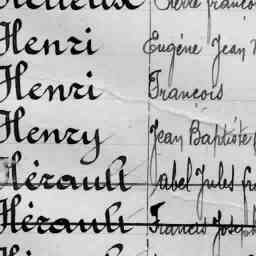 Henri Eugène Jean
Henri Francois
Henry Jean Baptiste
Hérault Jules
Hérault Francis Joseph